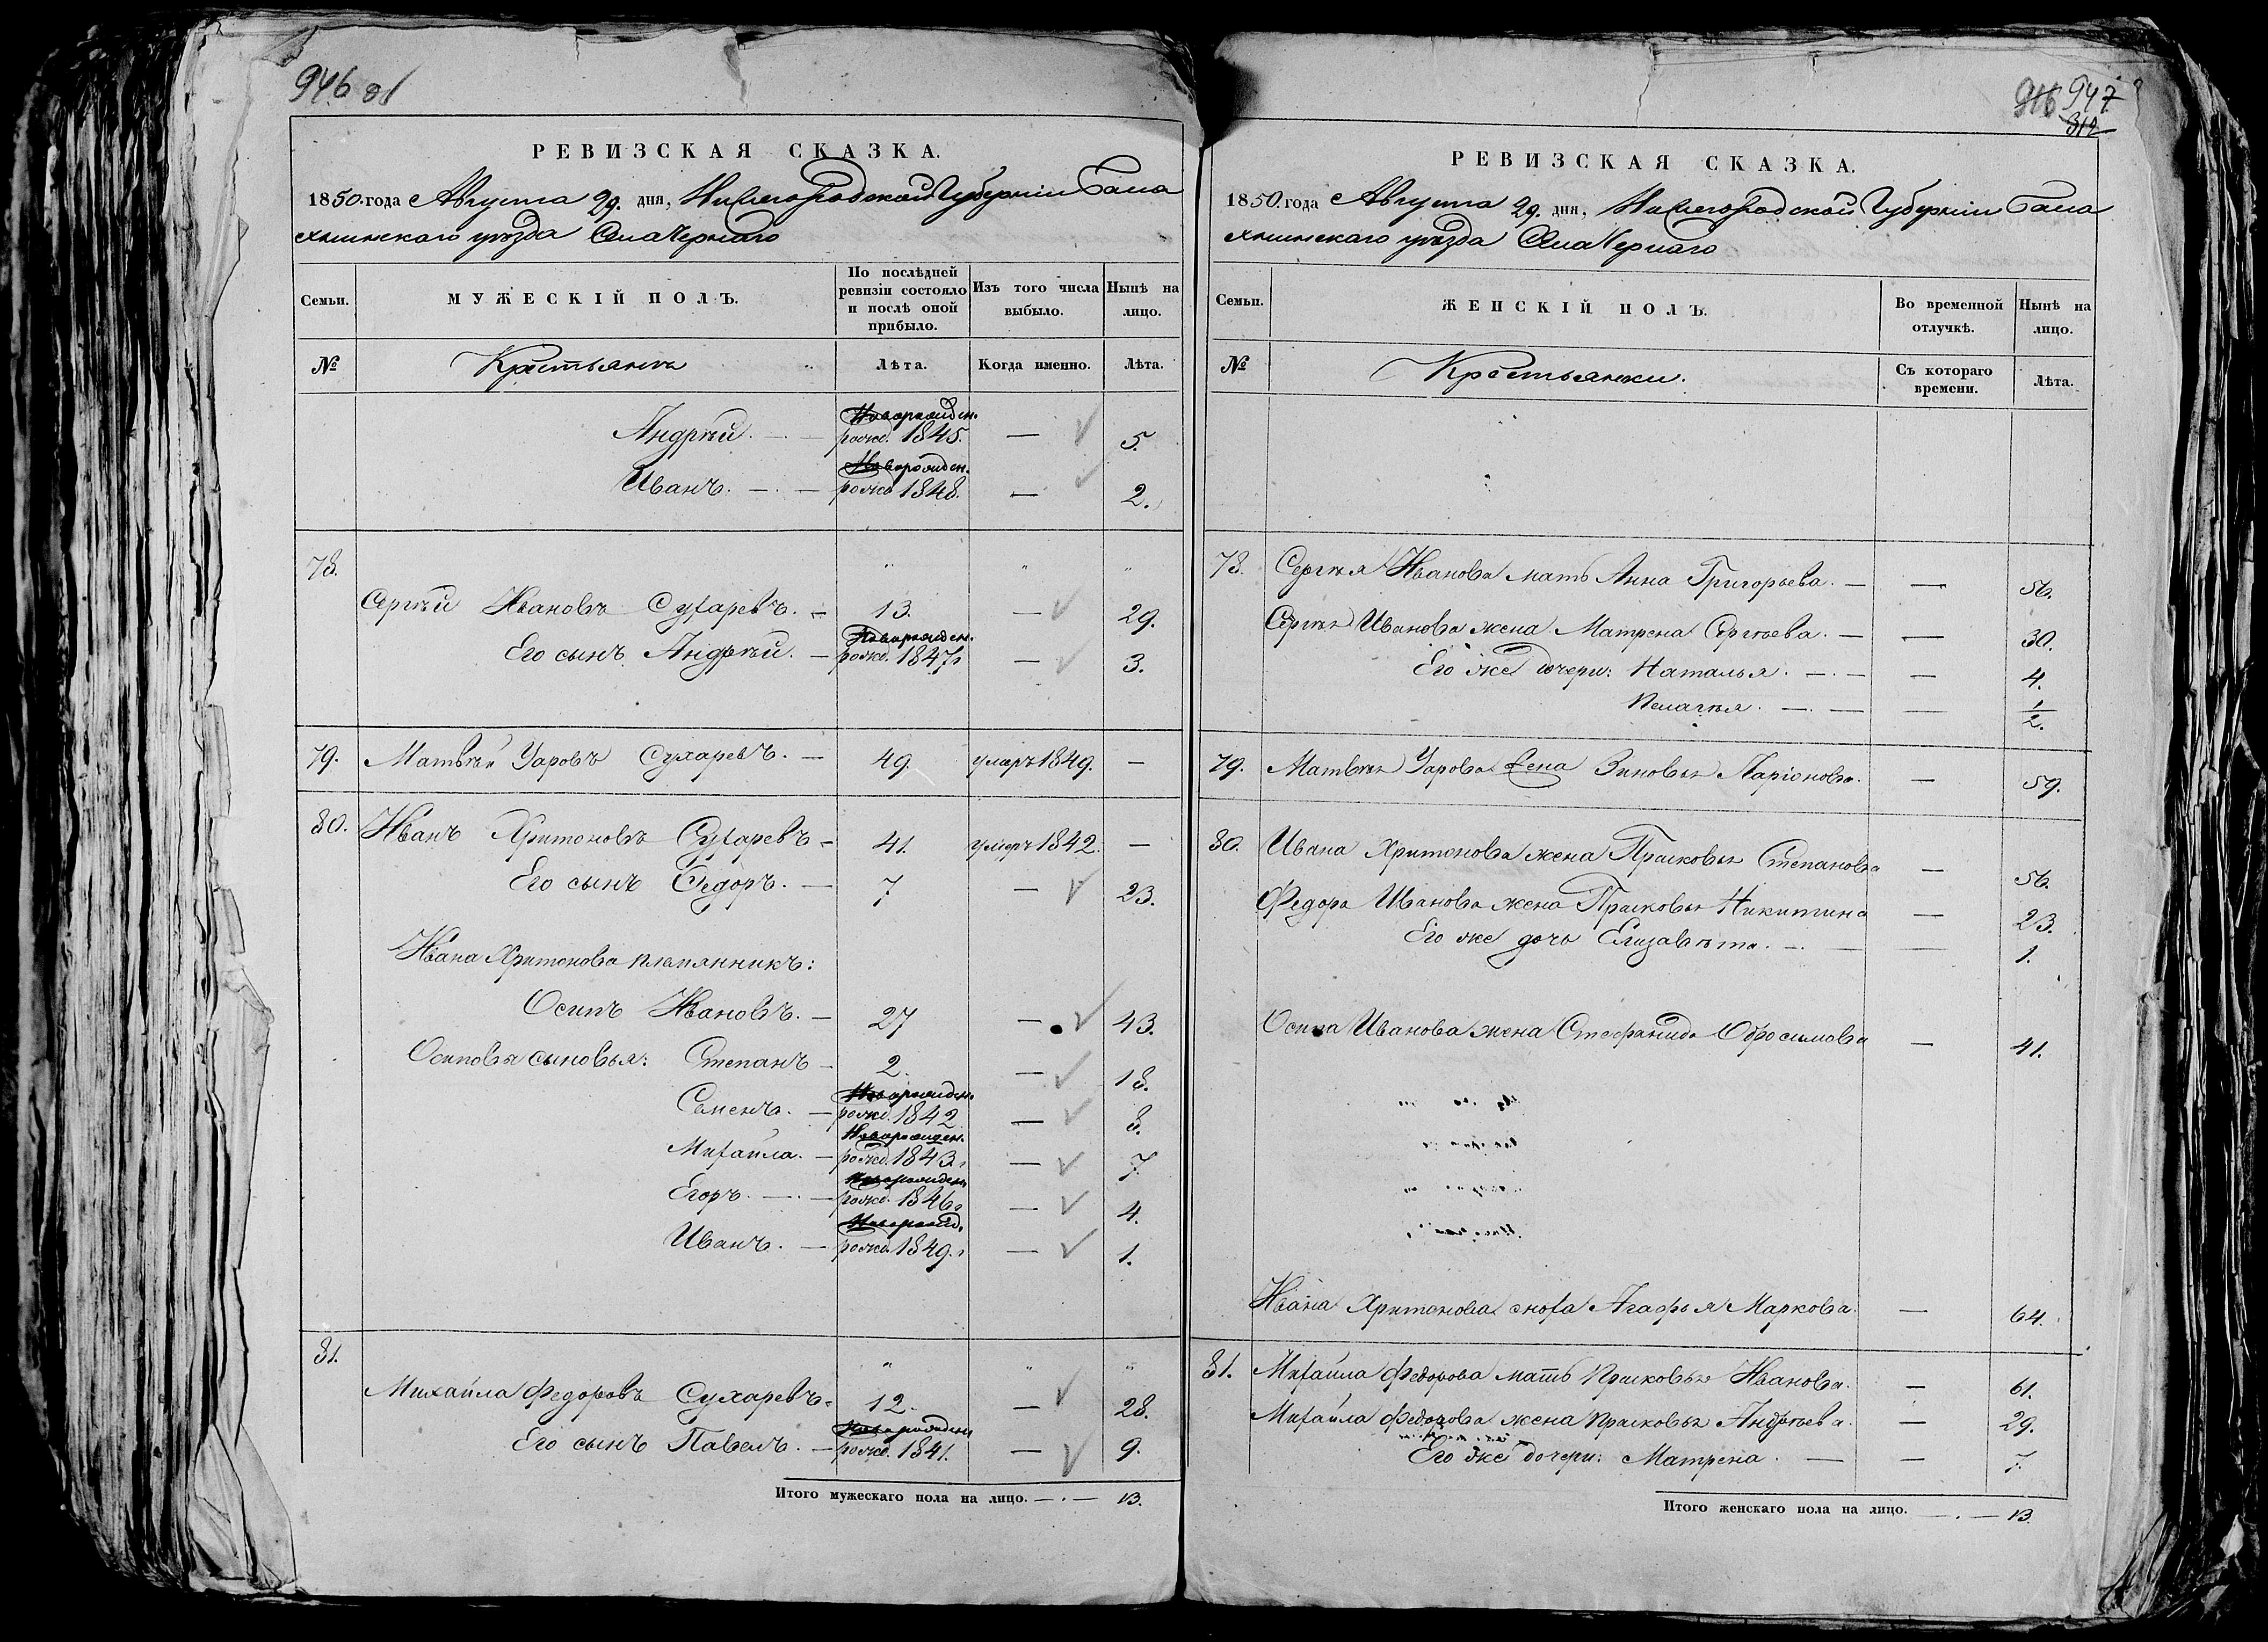 946 об
РЕВИЗСКАЯ СКАЗКА.
1850. года Августа 29. дня, Нижегородской Губернiи Бала
хнинскаго уѣзда Села Чернаго
Семьи.
МУЖЕСКІЙ ПОЛЪ.
По послѣдней ревизіи состояло и послѣ оной прибыло.
Изъ того числа выбыло.
Нынѣ на лицо.
№
Крестьянъ
Лѣта.
Когда именно.
Лѣта.
Андрѣй. — Новорожден. рожд. 1845. — 5.
Иванъ. — Новорожден. рожд 1848. — 2.
78. " " "
Сергѣй Ивановъ Сухаревъ. — 13. — 29.
Его сынъ Андрѣй. — Новорожден. рожд. 1847. — 3.
79. Матвѣй Уаровъ Сухаревъ. — 49. умеръ 1849. —
80. Иванъ Хритоновъ Сухаревъ — 41. умеръ 1842. —
Его сынъ Ѳедоръ. — 7 — 23.
Ивана Хритонова племянникъ:
Осипъ Ивановъ. — 27 — 43.
Осиповы сыновья: Степанъ — 2. — 18.
Семенъ. — Новорожден. рожд. 1842 — 8.
Михайла. — Новорожден. рожд. 1843. — 7.
Егоръ. — Новорожден рожд. 1846. — 4.
Иванъ. — Новорожд. рожд. 1849. — 1.
81. " " "
Михайла Федоровъ Сухаревъ. 12. — 28.
Его сынъ Павелъ. — Новорожден рожд. 1841. — 9.
Итого мужескаго пола на лицо. — . — 13.
916 947
312
РЕВИЗСКАЯ СКАЗКА.
1850. года Августа 29. дня, Нижегородской Губернiи Бала
хнинскаго уѣзда Села Чернаго
Семьи.
ЖЕНСКІЙ ПОЛЪ.
Во временной отлучкѣ.
Нынѣ на лицо.
№
Крестьянки.
Съ котораго времени.
Лѣта.
78. Сергѣя Иванова мать Анна Григорьева. — — 56.
Сергѣя Иванова жена Матрена Сергѣева. — — 30.
Его же дочери: Наталья. — . — — 4.
Пелагѣя. — . — — 1/2.
79. Матвѣя Уарова жена Зиновья Ларіонова. — 59.
80. Ивана Хритонова жена Прасковья Степанова — 56.
Федора Иванова жена Прасковья Никитина — 23.
Его же дочь Елизавѣта. — . — — 1.
Осипа Иванова жена Стефанида Обросимова — 41.
Ивана Хритонова сноха Агафья Маркова. — 64.
81. Михайла Федорова мать Прасковья Иванова. — 61.
Михайла Федорова жена Прасковья Андрѣева. — 29.
Его же дочери: Матрена. — — 7.
Итого женскаго пола на лицо. — . — 13.